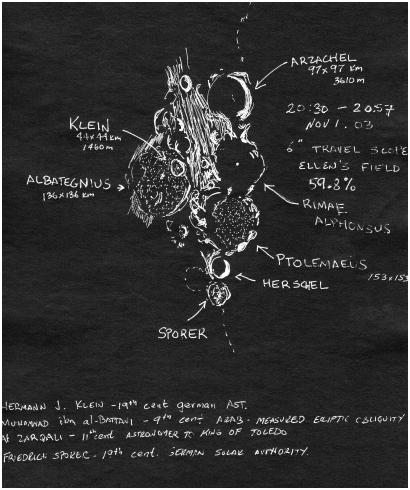 ARZACHEL
97x97 KM
3610 m
20:30 – 20:57
NOV 1. 03
6" TRAVEL SCOPE
ELLEN'S FIELD
59.8%
KLEIN
44x44 KM
1460 m
ALBATEGNIUS
136x136 KM
RIMAE
ALPHONSUS
PTOLEMAEUS
153x153
HERSCHEL
SPORER
HERMANN J. KLEIN - 19th cent german AST.
MUHAMMAD ibn al-BATTANI - 9th cent ARAB - MEASURED ECLIPTIC OBLIQUITY
ZARQALI - 11th cent ASTRONOMER TO KING OF TOLEDO
FRIEDRICH SPORER - 19th cent. GERMAN SOLAR AUTHORITY.